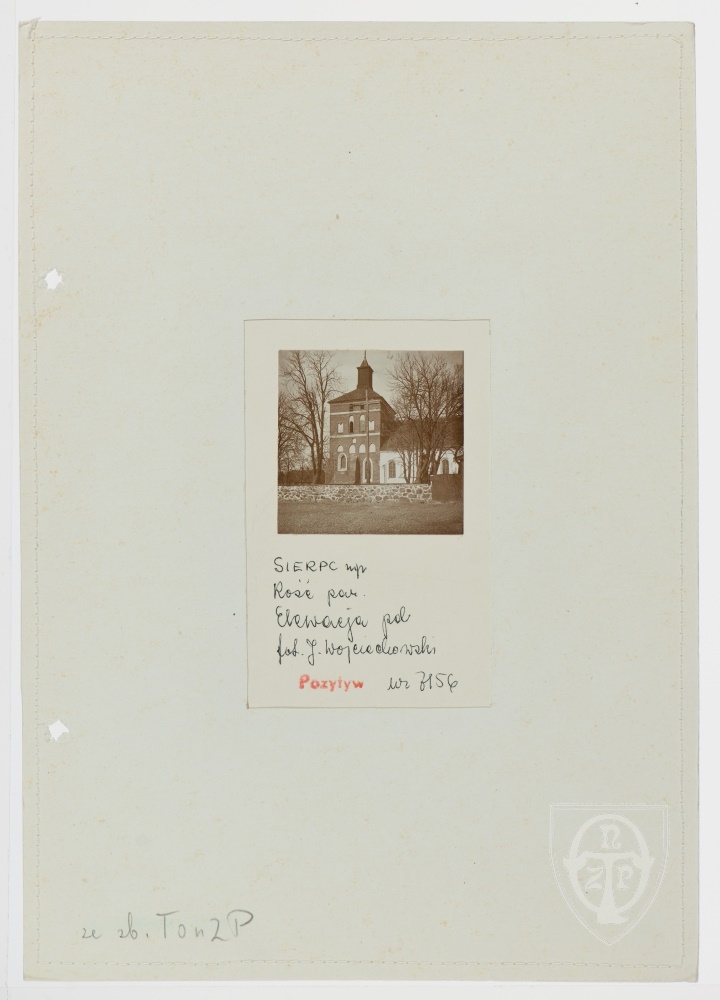 SIERPC
Kość par.
Elewacja pd
fot. J. Wojciechowski
Pozytyw nr 7156
ze zb. TOnZP
TOnZP